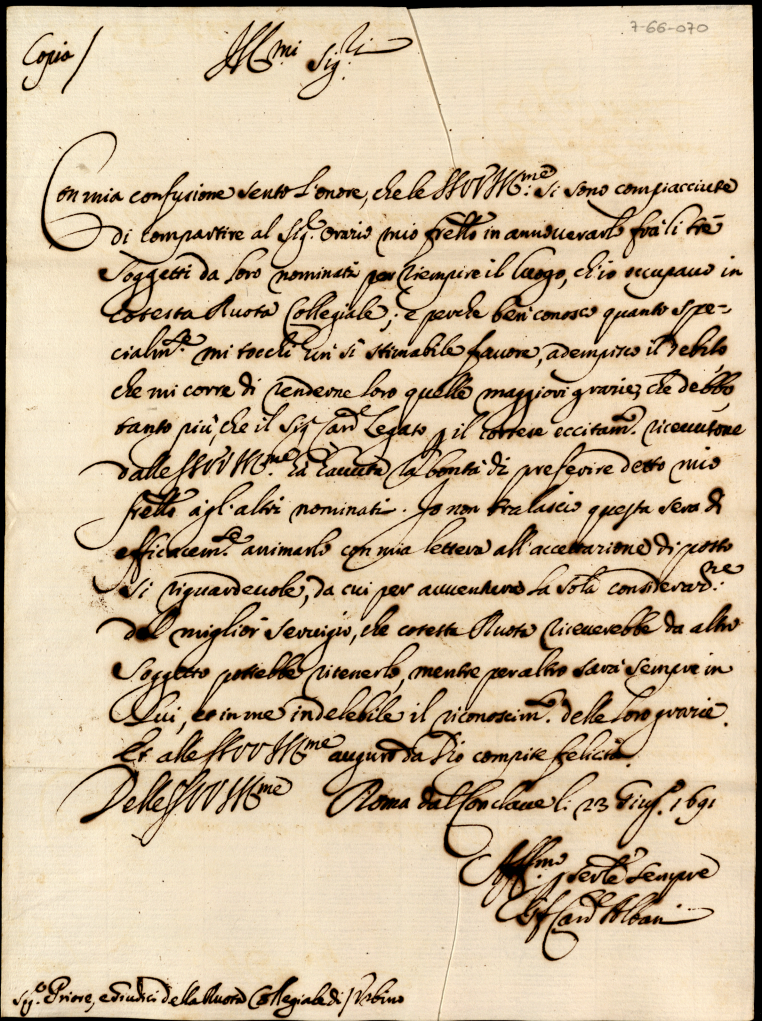 7-66-070
Copia /
Ill.mi Sig.ri
Con mia confusione sento l'onore, che le SS.VV. Ill.me si sono compiacciute
di compartire al Sig.r Orazio mio fr̃ello in annoverarlo frà li trè
Soggetti da loro nominati per riempire il luogo, ch'io occupavo in
cotesta Ruota Collegiale; e perche ben conosco quanto spe-
cialm.te mi tocchi un sì stimabile favore, adempisco il debito
che mi corre di renderne loro quelle maggiori grazie, che debbo
tanto più, che il Sig. Card. Legato p il cortese eccitam.to ricevutone
dalle SS.VV. Ill.me hà havuta la bontà di preferire detto mio
fr̃ello à gl'altri nominati. Io non tralascio questa sera di
efficacem.te animarlo con mia lettera all'accettazione di posto
sì riguardevole, da cui per avventura la sola consideraz.ne
del miglior servigio, che cotesta Ruota riceverebbe da altro
Soggetto potrebbe ritenerlo, mentre per altro sarà sempre in
Lui, et in me indelebile il riconoscim.to delle loro grazie.
Et alle SS.VV. Ill.me auguro da Dio compite felicità.
Delle SS.VV. Ill.me Roma dal Conclave li 23 Giug.o 1691
Aff.mo p serle sempre
G.F. Card. Albani
Sig.ri Priore, e Giudici della Ruota Collegiale di Urbino